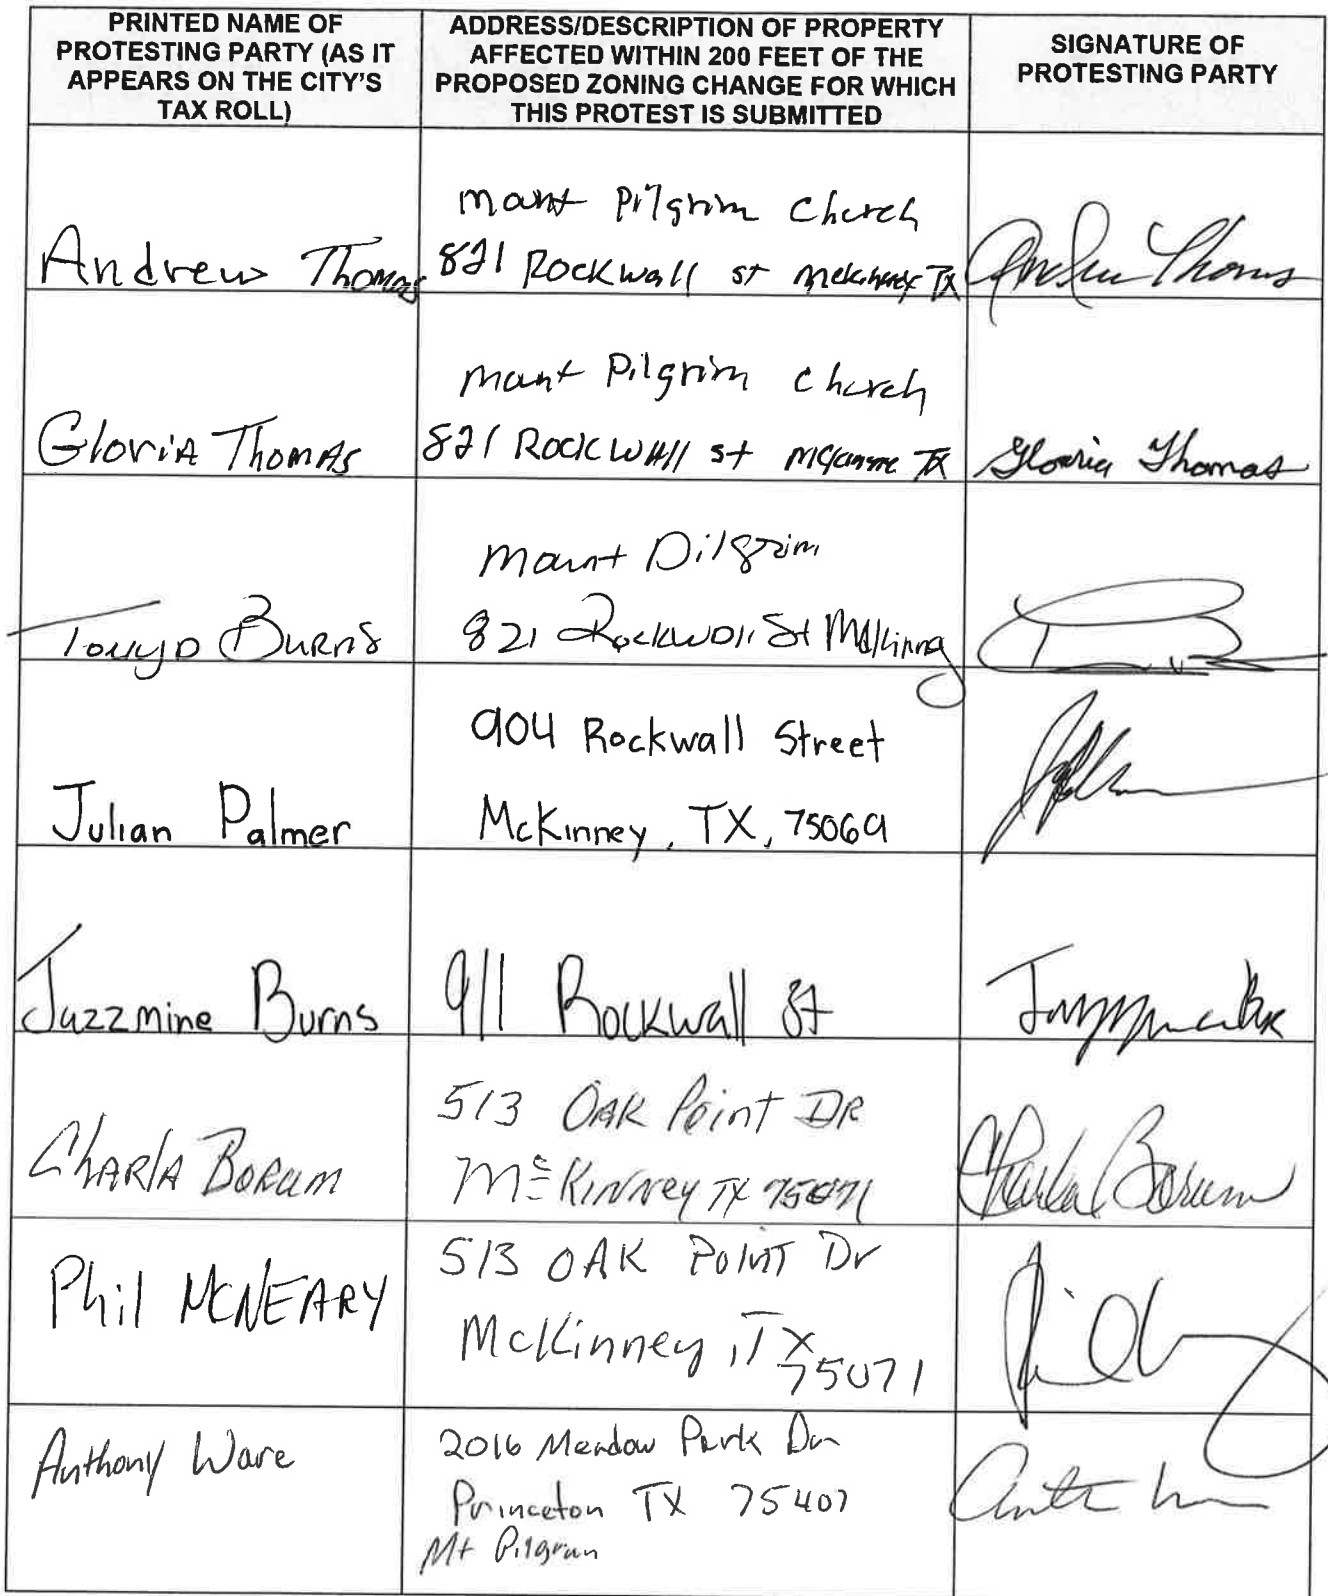 PRINTED NAME OF
PROTESTING PARTY (AS IT
APPEARS ON THE CITY'S
TAX ROLL)
ADDRESS/DESCRIPTION OF PROPERTY
AFFECTED WITHIN 200 FEET OF THE
PROPOSED ZONING CHANGE FOR WHICH
THIS PROTEST IS SUBMITTED
SIGNATURE OF
PROTESTING PARTY
Andrew Thomas
Mount Pilgrim Church
821 Rockwall st McKinney TX
Andrew Thomas
Gloria Thomas
Mount Pilgrim Church
821 Rockwall st TX
Gloria Thomas
Burns
Mount Pilgrim
821 Rockwall St McKinney
Julian Palmer
904 Rockwall Street
McKinney, TX, 75069
Jazzmine Burns
911 Rockwall St
Charla Borum
513 Oak Point DR
McKinney TX 75071
Charla Borum
Phil McNeary
513 OAK POINT Dr
McKinney, TX
75071
Anthony Ware
2016 Meadow Park Dr
Princeton TX 75407
Mt Pilgram